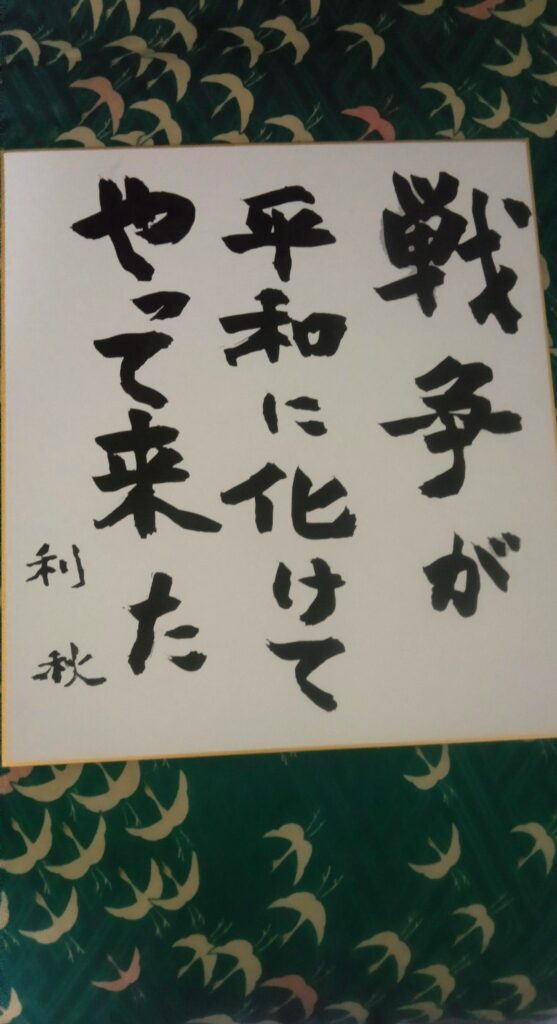 戦争が
平和に化けて
やって来た
利秋